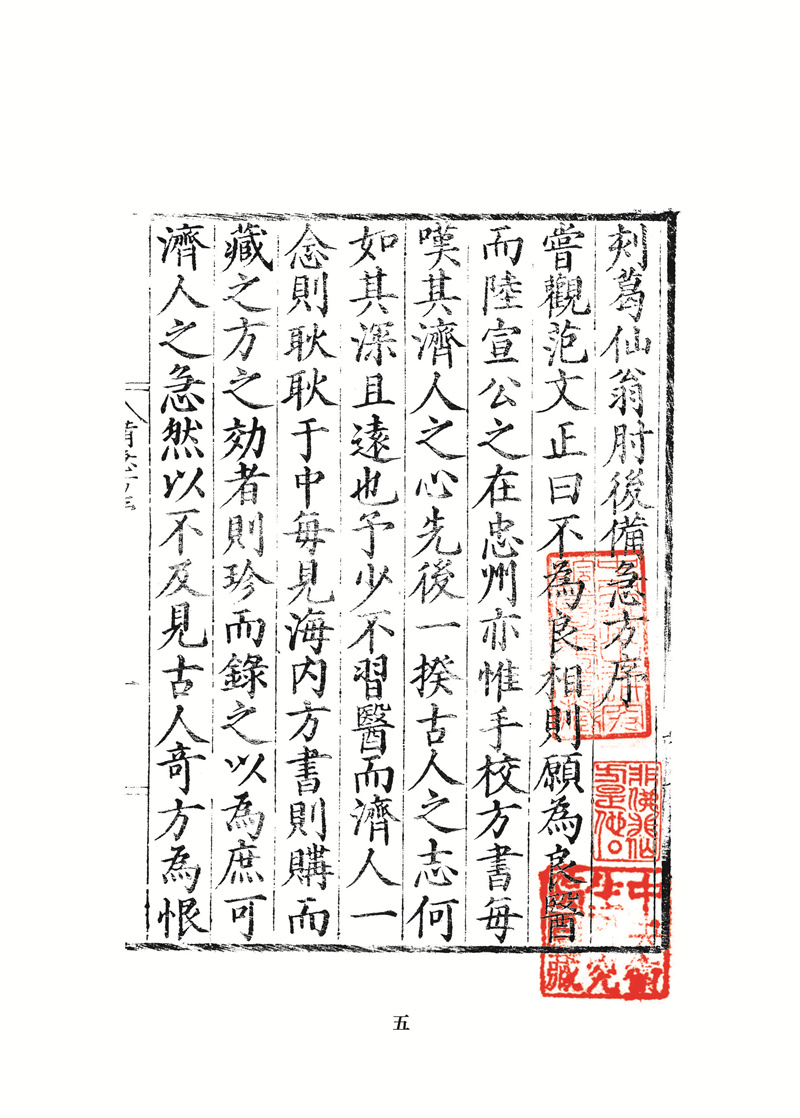 刻葛仙翁肘後備急方序
嘗觀范文正曰不為良相則願為良醫
而陸宣公之在忠州亦惟手校方書每
嘆其濟人之心先後一揆古人之志何
如其深且遠也予少不習醫而濟人一
念則耿耿于中每見海内方書則購而
藏之方之効者則珍而錄之以為庶可
濟人之急然以不及見古人奇方為恨
五